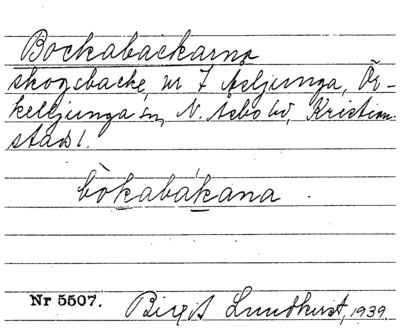 Bockabackarna
skogsbacke, nr 7 Åsljunga, Ör-
kelljunga sn, N. Åsbo hd, Kristian-
stads l.
bòkabákana.
Nr 5507.
Birgit Lundkvist, 1939.